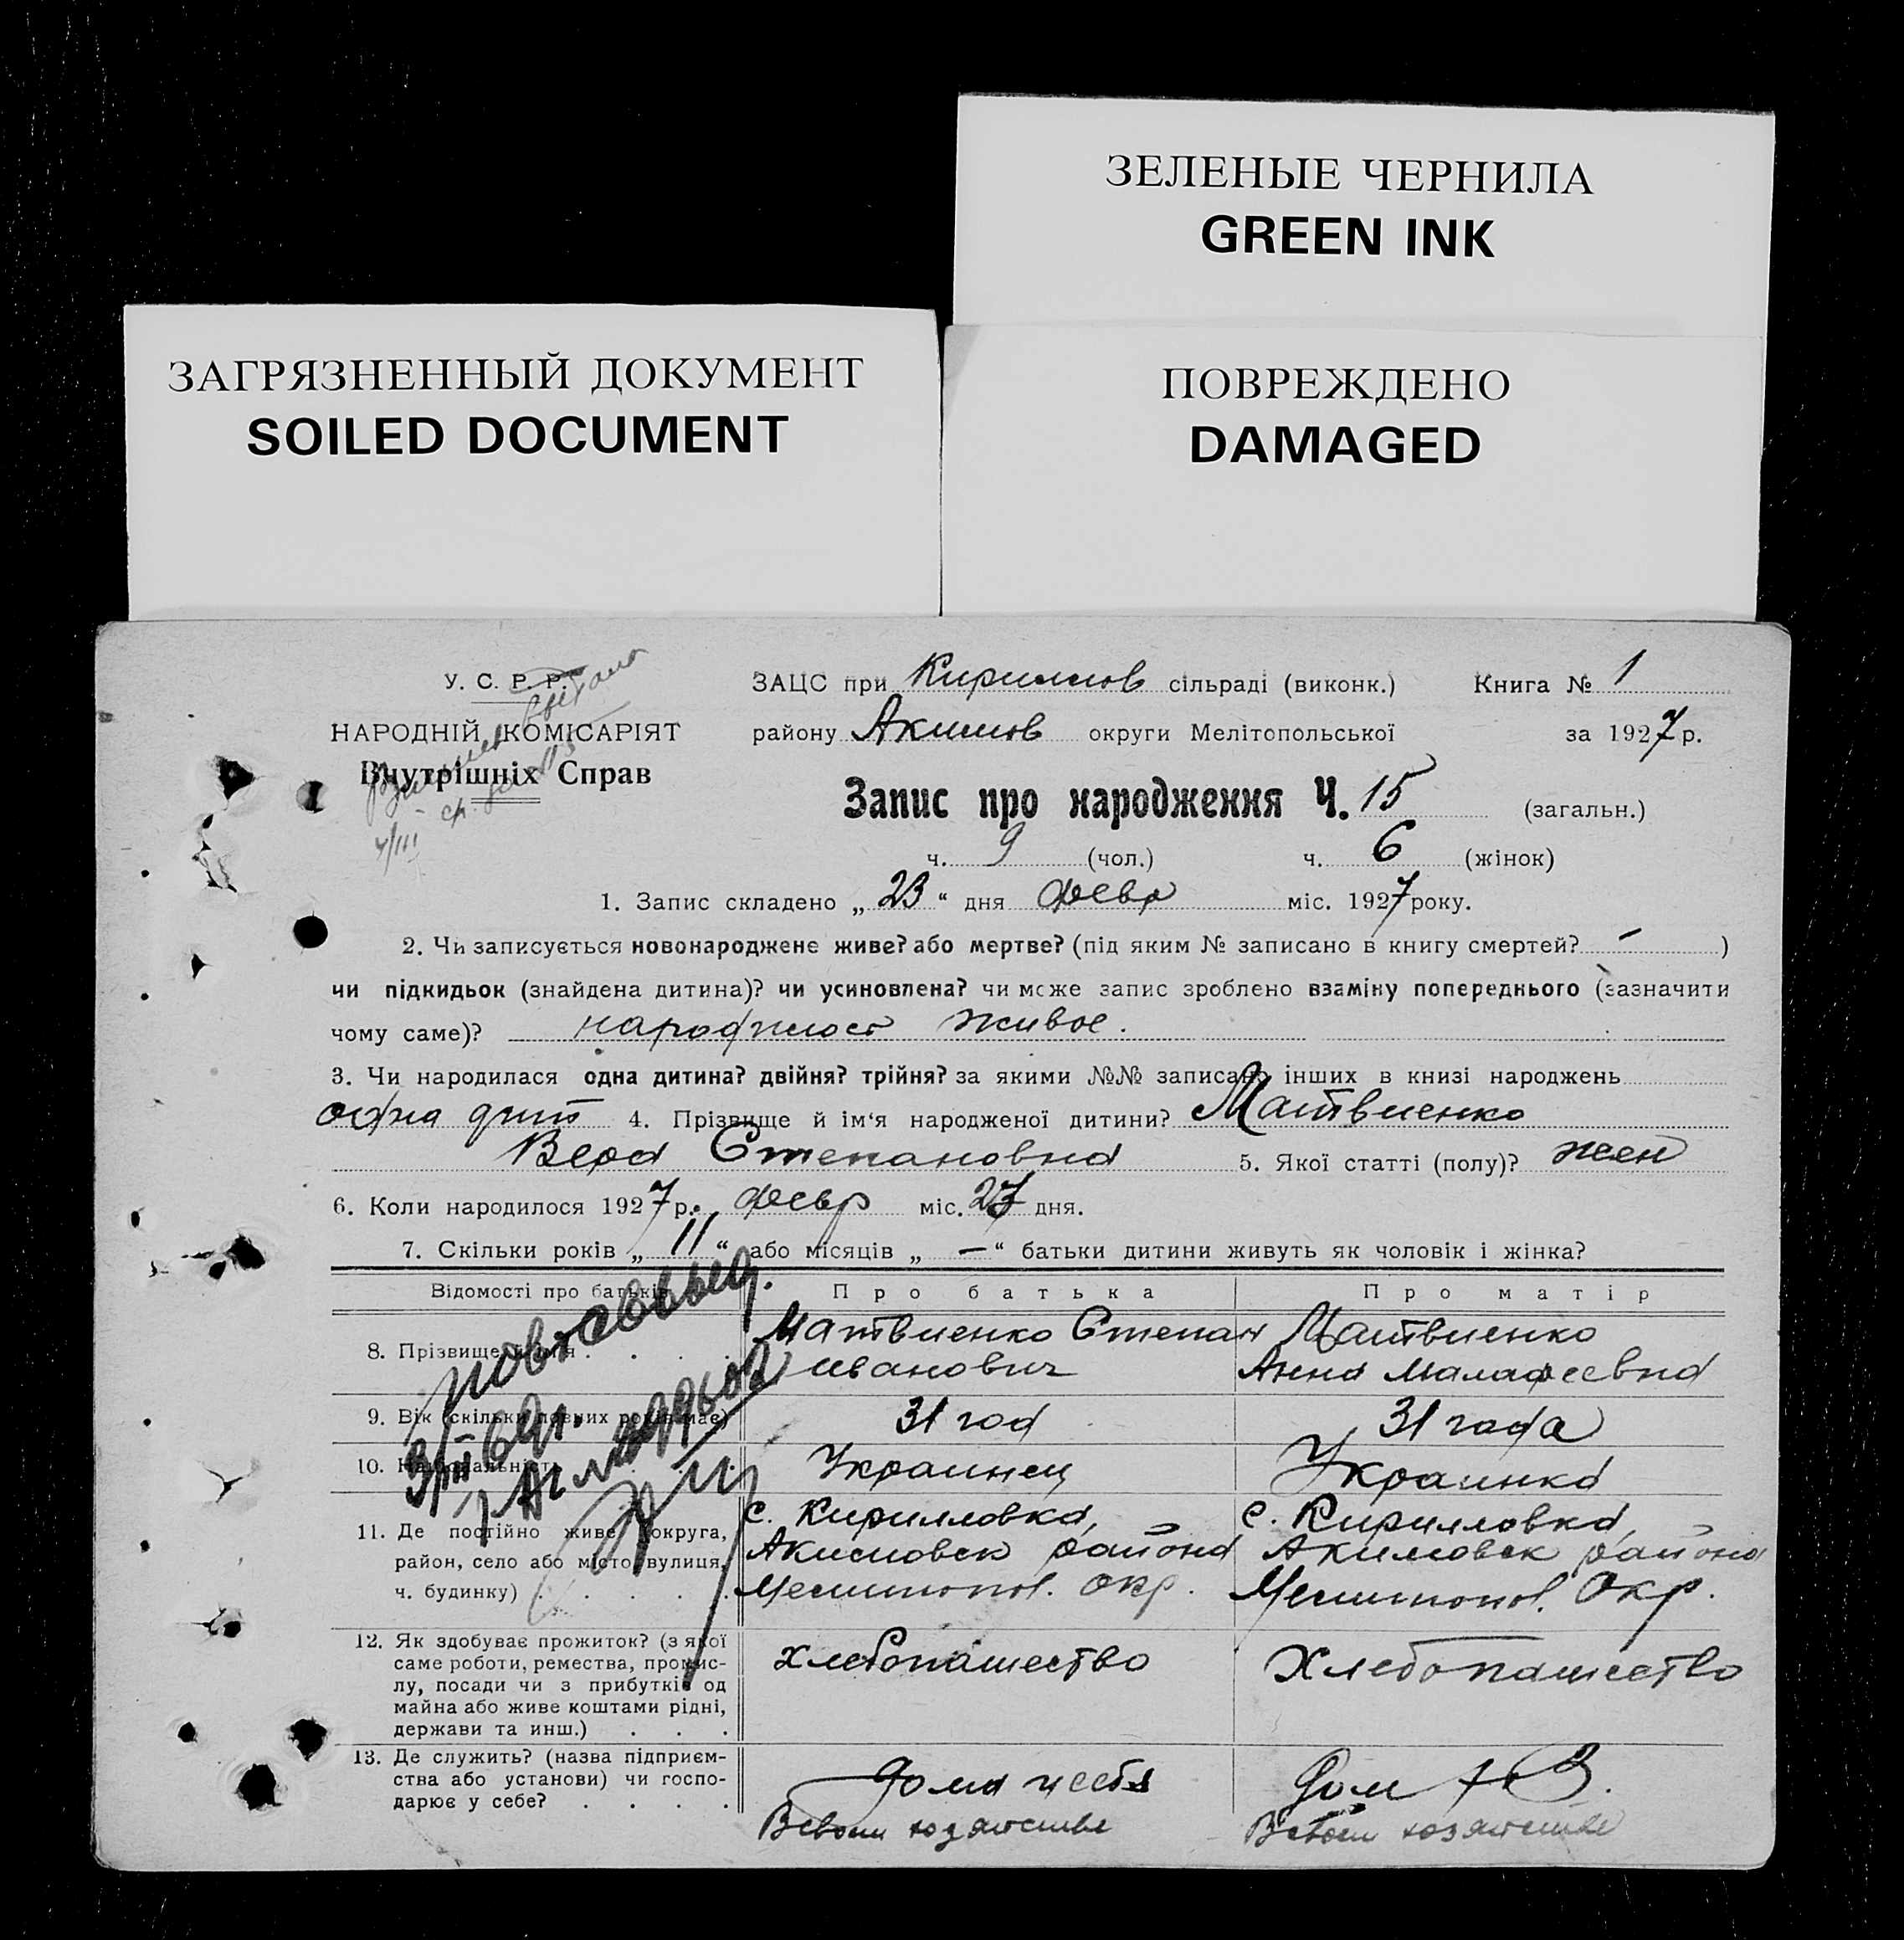 ЗЕЛЕНЫЕ ЧЕРНИЛА
GREEN INK
ЗАГРЯЗНЕННЫЙ ДОКУМЕНТ
SOILED DOCUMENT
ПОВРЕЖДЕНО
DAMAGED
У. С. Р. Р.
НАРОДНІЙ КОМІСАРІЯТ
Внутрішніх Справ
ЗАЦС при Кириллов сільраді (виконк.) Книга № 1
району Акимов округи Мелітопольської за 1927 р.
Запис про народження Ч. 15 (загальн.)
ч. 9 (чол.) ч. 6 (жінок)
1. Запис складено „ 23 “ дня февр міс. 1927 року.
2. Чи записується новонароджене живе? або мертве? (під яким № записано в книгу смертей? – )
чи підкидьок (знайдена дитина)? чи усиновлена? чи може запис зроблено взаміну попереднього (зазначити
чому саме)? живое.
3. Чи народилася одна дитина? двійня? трійня? за якими №№ записано інших в книзі народжень
одна дит 4. Прізвище й ім'я народженої дитини? Матвиенко
Вера Степановна 5. Якої статті (полу)? жен
6. Коли народилося 1927 р. февр міс. дня.
7. Скільки років „ 11 “ або місяців „ — “ батьки дитини живуть як чоловік і жінка?
Відомості про батьків Про батька Про матір
8. Прізвище й ім'я . . . . Матвиенко Степан Иванович Матвиенко Анна Малафеевна
9. Вік (скільки повних років має) 31 год 31 года
10. Національність Украинец Украинка
11. Де постійно живе (округа, район, село або місто, вулиця, ч. будинку) . . . . .
с. Кирилловка, Акимовск района Мелитопол. Окр.
с. Кирилловка, Акимовск района Мелитопол. Окр.
12. Як здобуває прожиток? (з якої
саме роботи, ремества, промис-
лу, посади чи з прибутків од
майна або живе коштами рідні,
держави та инш.) . . .
Хлебопашество Хлебопашество
13. Де служить? (назва підприєм-
ства або установи) чи госпо-
дарює у себе? . . . .
Дома у себя
В своем хозяйстве
Дом
В своем хозяйстве